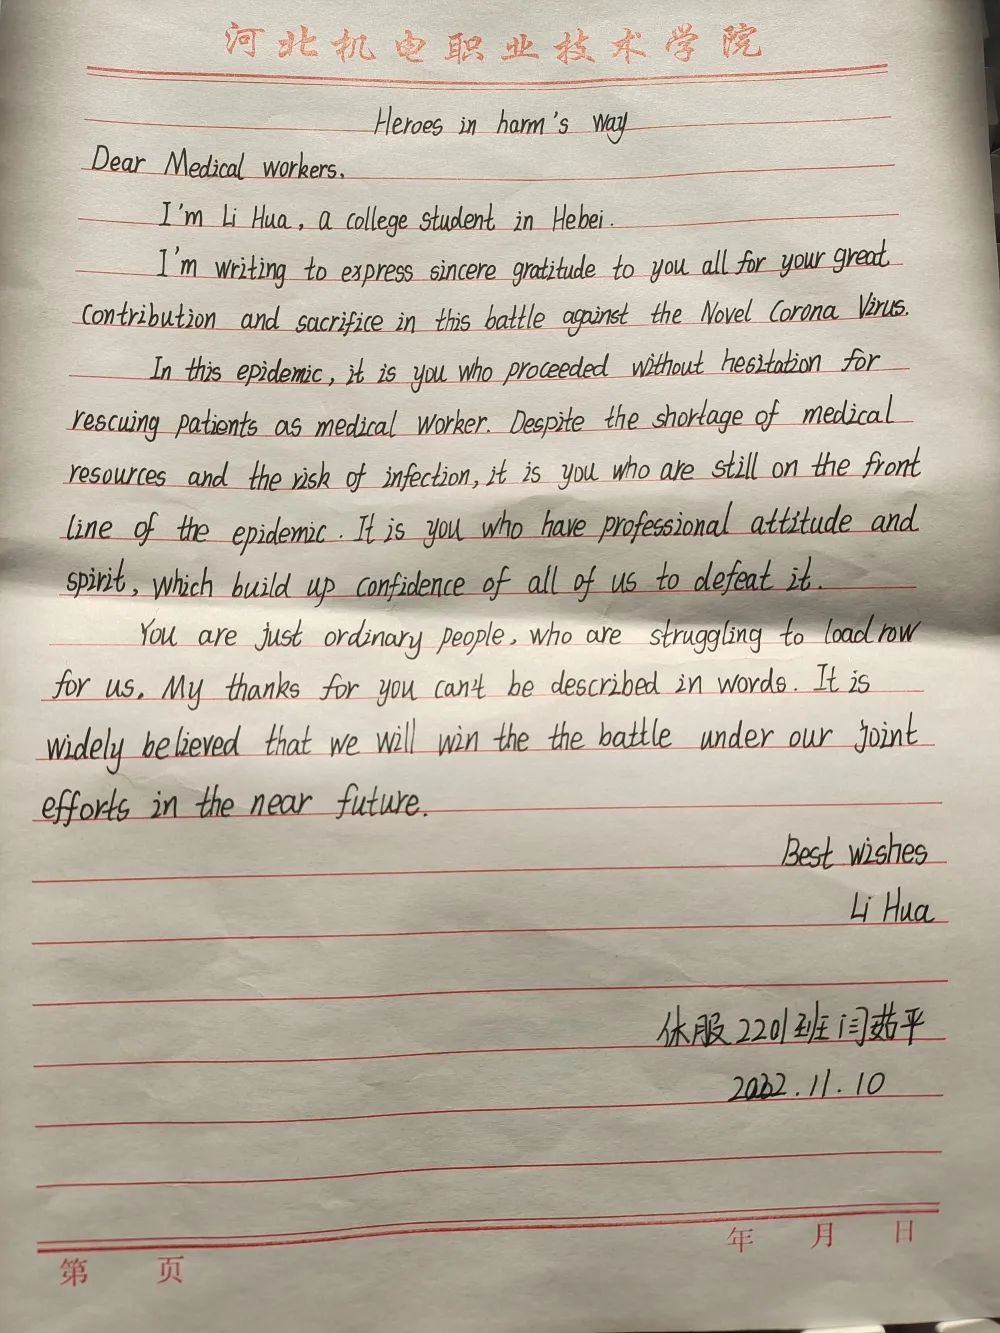 河北机电职业技术学院
Heroes in harm's way
Dear Medical workers.
I'm Li Hua, a college student in Hebei.
I'm writing to express sincere gratitude to you all for your great
contribution and sacrifice in this battle against the Novel Corona Virus.
In this epidemic, it is you who proceeded without hesitation for
rescuing patients as medical worker. Despite the shortage of medical
resources and the risk of infection, it is you who are still on the front
line of the epidemic. It is you who have professional attitude and
spirit, which build up confidence of all of us to defeat it.
You are just ordinary people, who are struggling to load row
for us. My thanks for you can't be described in words. It is
widely believed that we will win the the battle under our joint
efforts in the near future.
Best wishes
Li Hua
休服2201班闫茹平
2022.11.10
年 月 日
第 页